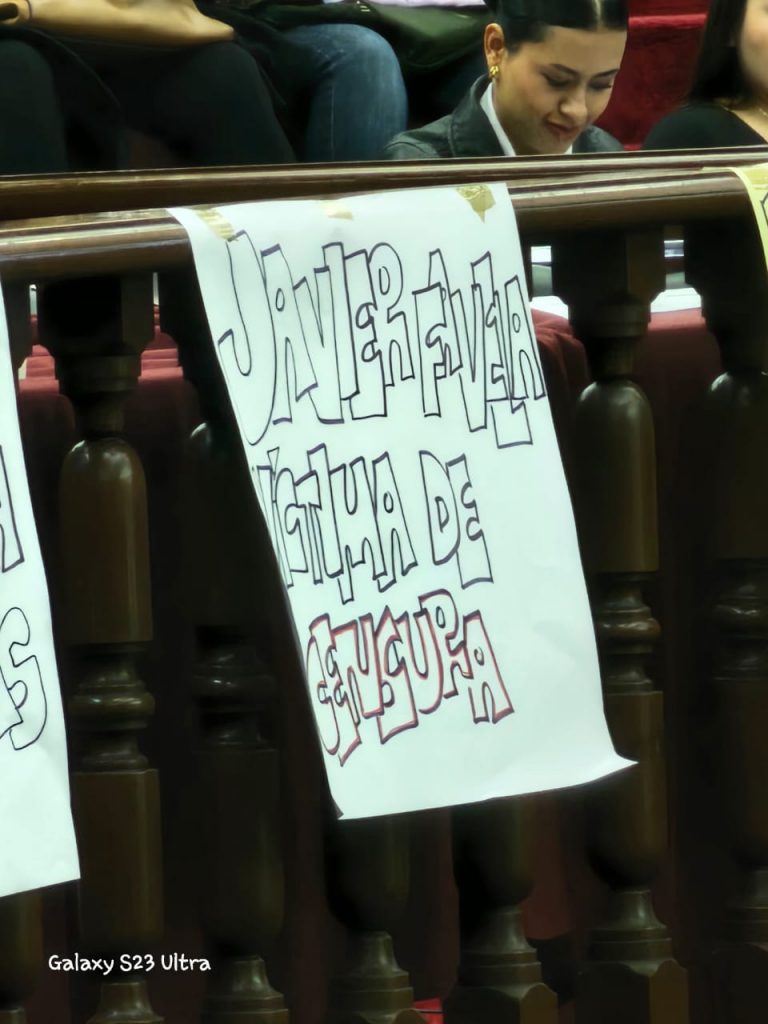 JAVIER FAVELA
VÍCTIMA DE
CENSURA
Galaxy S23 Ultra